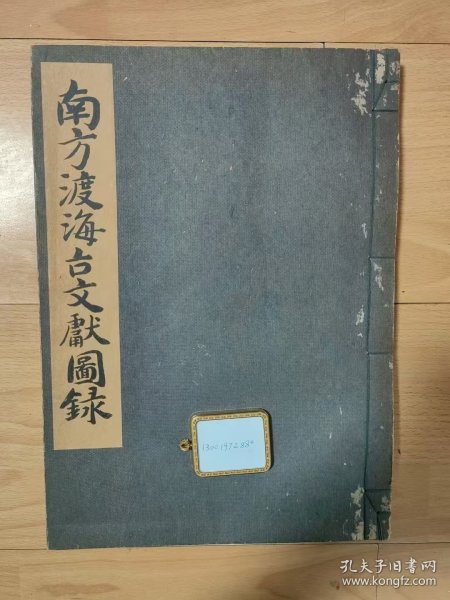 南方渡海古文獻圖録
孔夫子旧书网
www.kongfz.com